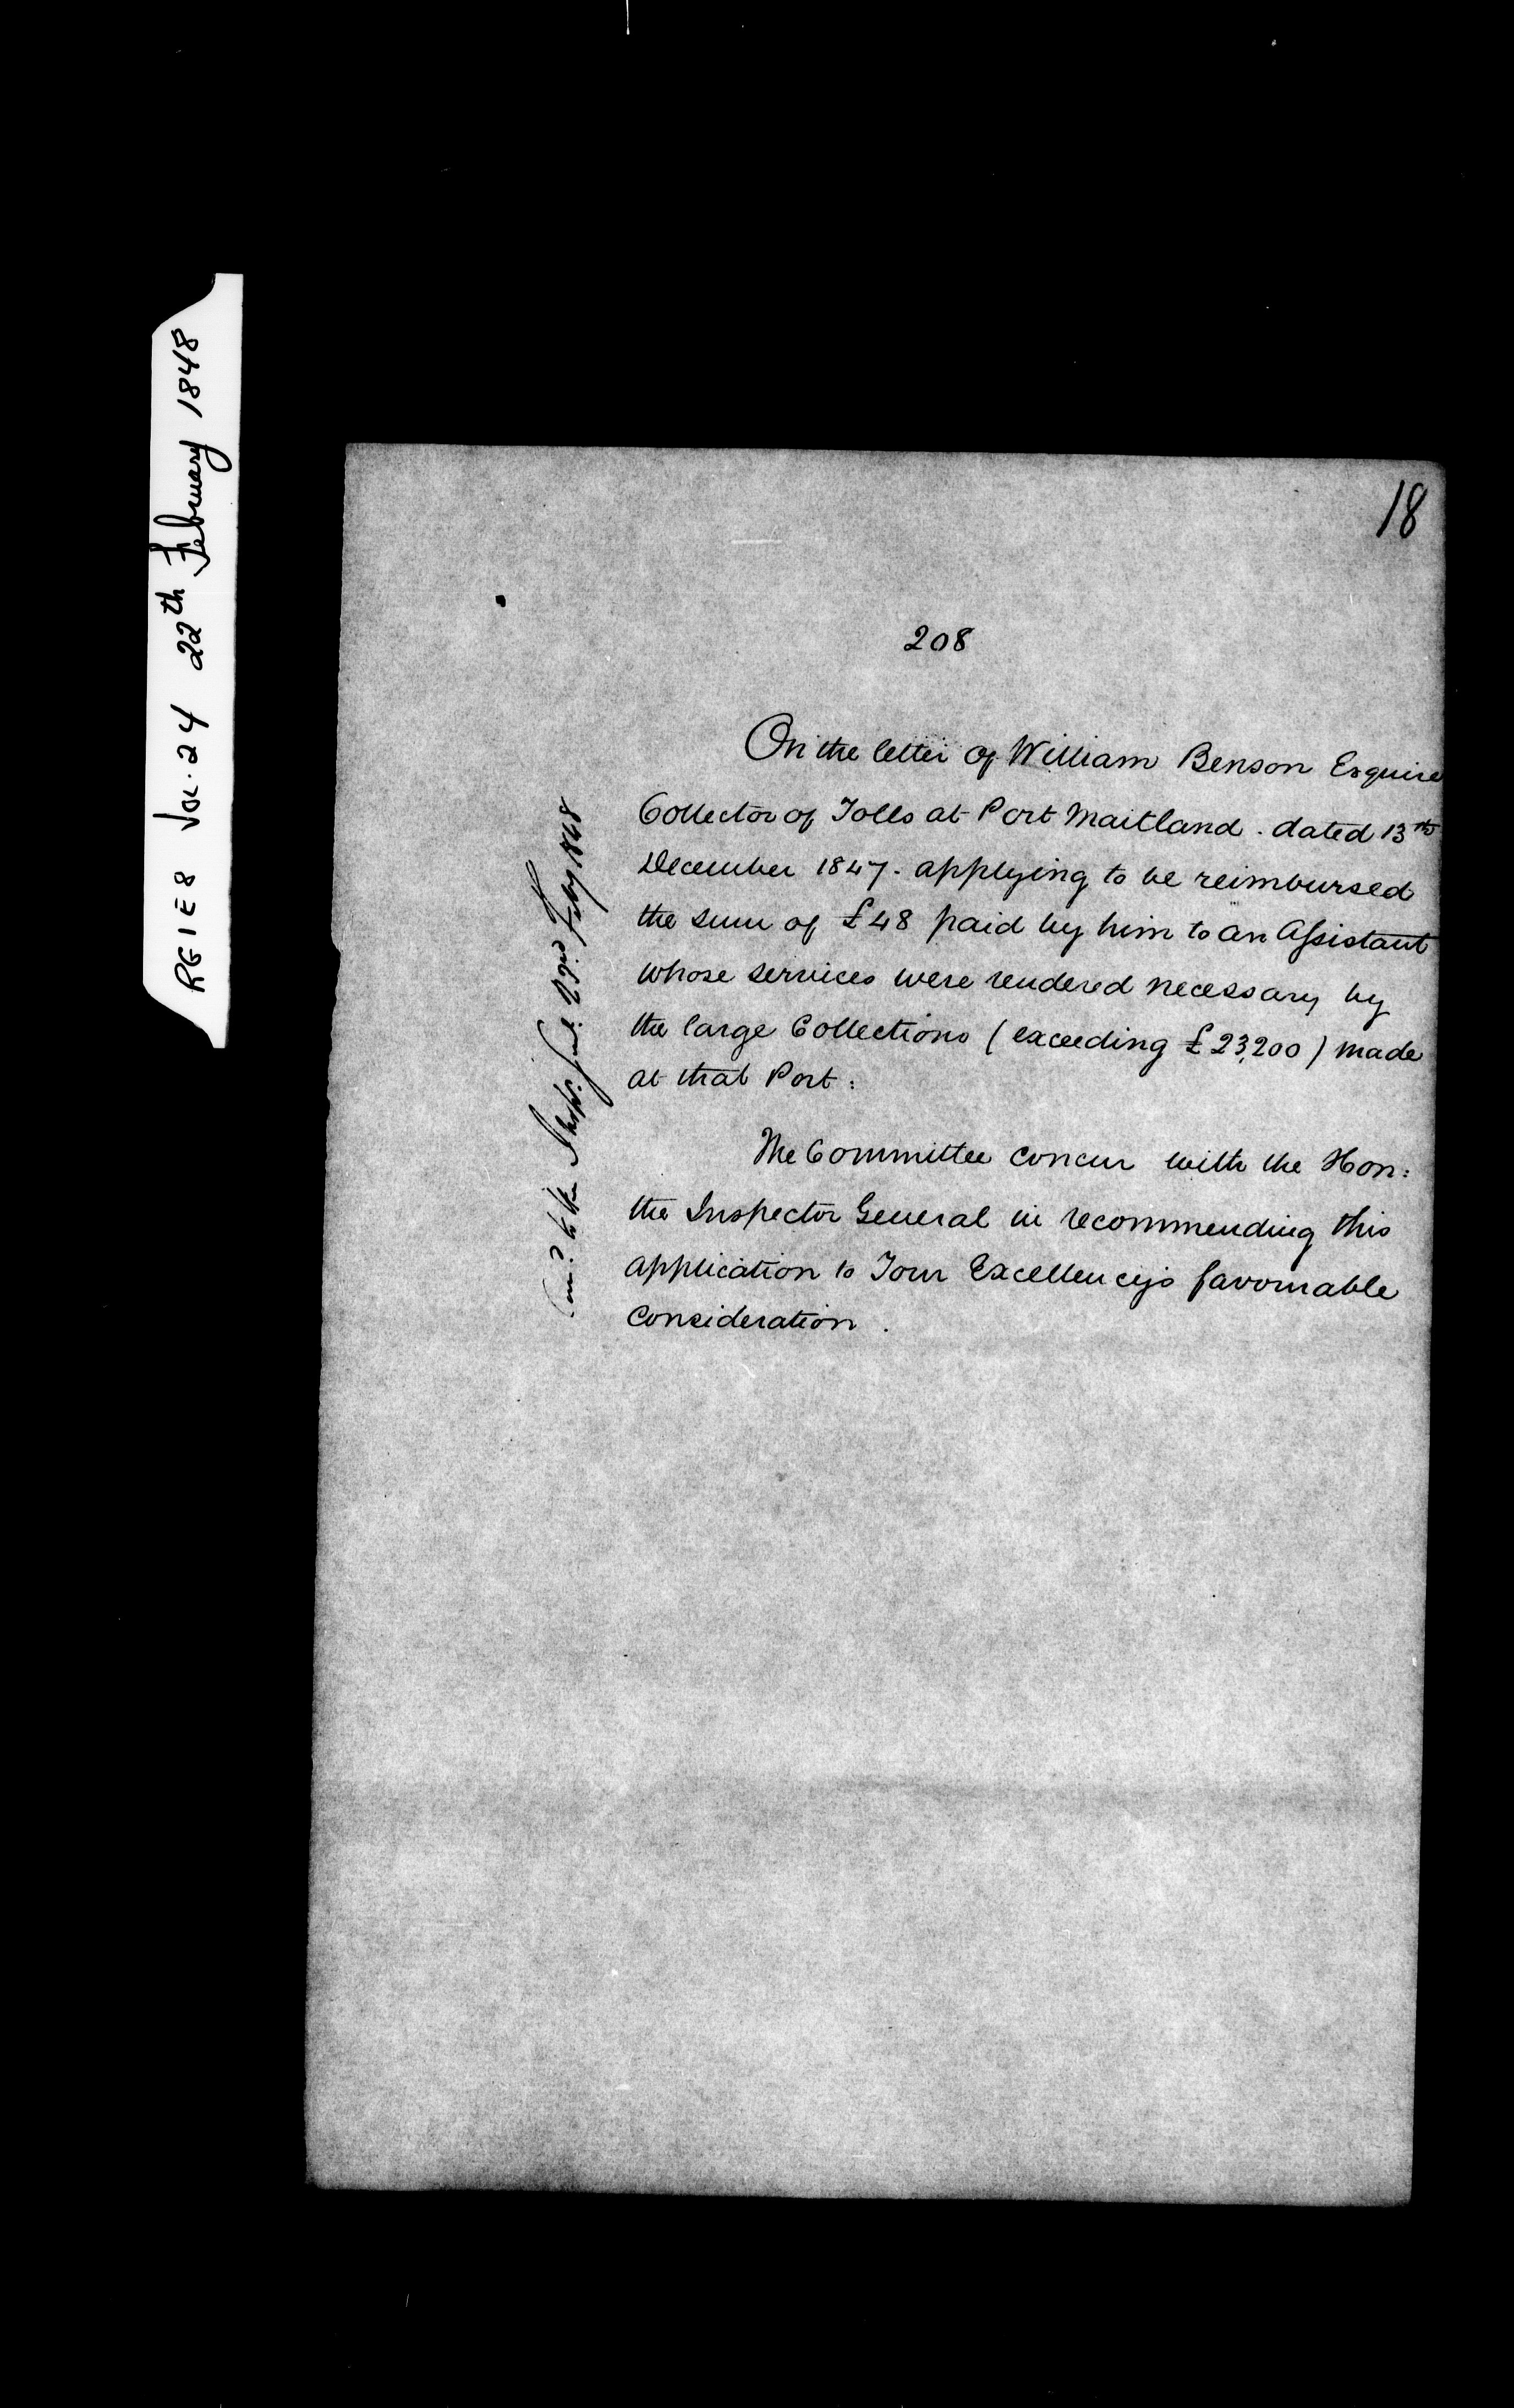 RG1E8 Vol. 24 22th February 1848
18
208
On the letter of William Benson Esquire
Collector of Tolls at Port Maitland. dated 13th
December 1847. applying to be reimbursed
the sum of £48 paid by him to an Assistant
whose services were rendered necessary by
the large Collections (exceeding £23,200) made
at that Port:
The Committee concur with the Hon:
the Inspector General in recommending this
application to Your Excellency's favourable
consideration.
Com.d to the Inspr. Genl. 23rd Feby 1848